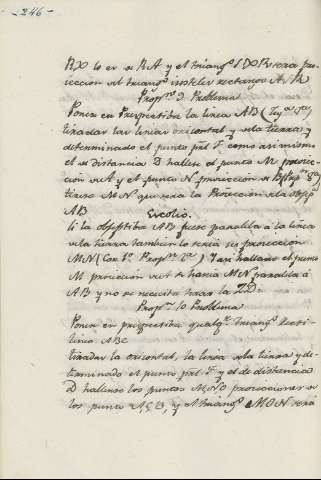 -246-
PX lo es de RA y el triang.º
yección del triang.º isoscles rectangº
Propºn 9. Problema
Poner en Perspectiba la linea AB (
tiradas las lineas orizontal, y de la tierra y
determinado el punto pral F. como asi mismo
el de distancia D hallese el punto M proiec-
ción de A y el punto N proiección de B
tirese MN que sera la Proiección de la
AB
Escolio.
Si la AB fuese paralela a la linea
de la tierra tambien lo seria su proiección
MN (Cor. Propºn ) y asi hallado el punto
M proiección de A tiraria MN paralela á
AB y no se necesita tirar la
Propºn 10 Problema
Poner en perspectiba qualqª triangº Recti-
lineo ABC
tiradas la orizontal, la linea de la tierra y de-
terminado el punto pral F y el de distancia
D hallense los puntos MNO proiecciones de
los puntos y el triangº MON será